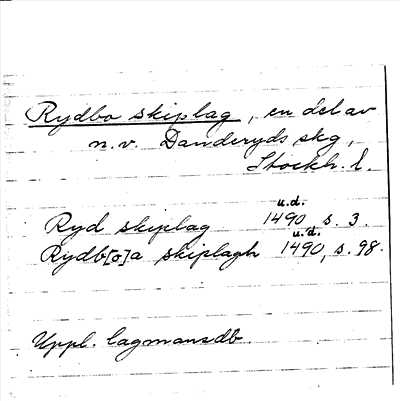 Rydbo skiplag, en del av
n.v. Danderyds skg,
Stockh. l.
u.d.
Ryd skiplag 1490, s. 3.
u.d.
Rydb[o]a skiplagh 1490, s. 98.
Uppl. lagmansdb